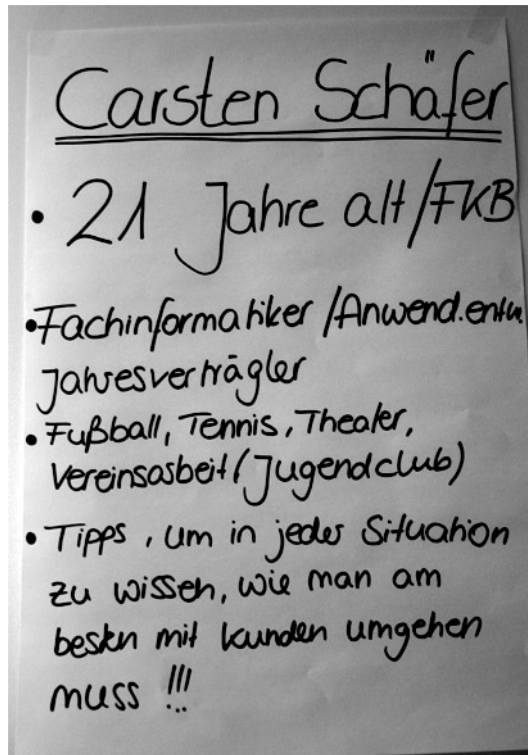 Carsten Schäfer
• 21 Jahre alt/FKB
• Fachinformatiker/Anwend.entw.
Jahresverträgler
• Fußball, Tennis, Theater,
Vereinsarbeit (Jugendclub)
• Tipps, um in jeder Situation
zu wissen, wie man am
besten mit Kunden umgehen
muss !!!